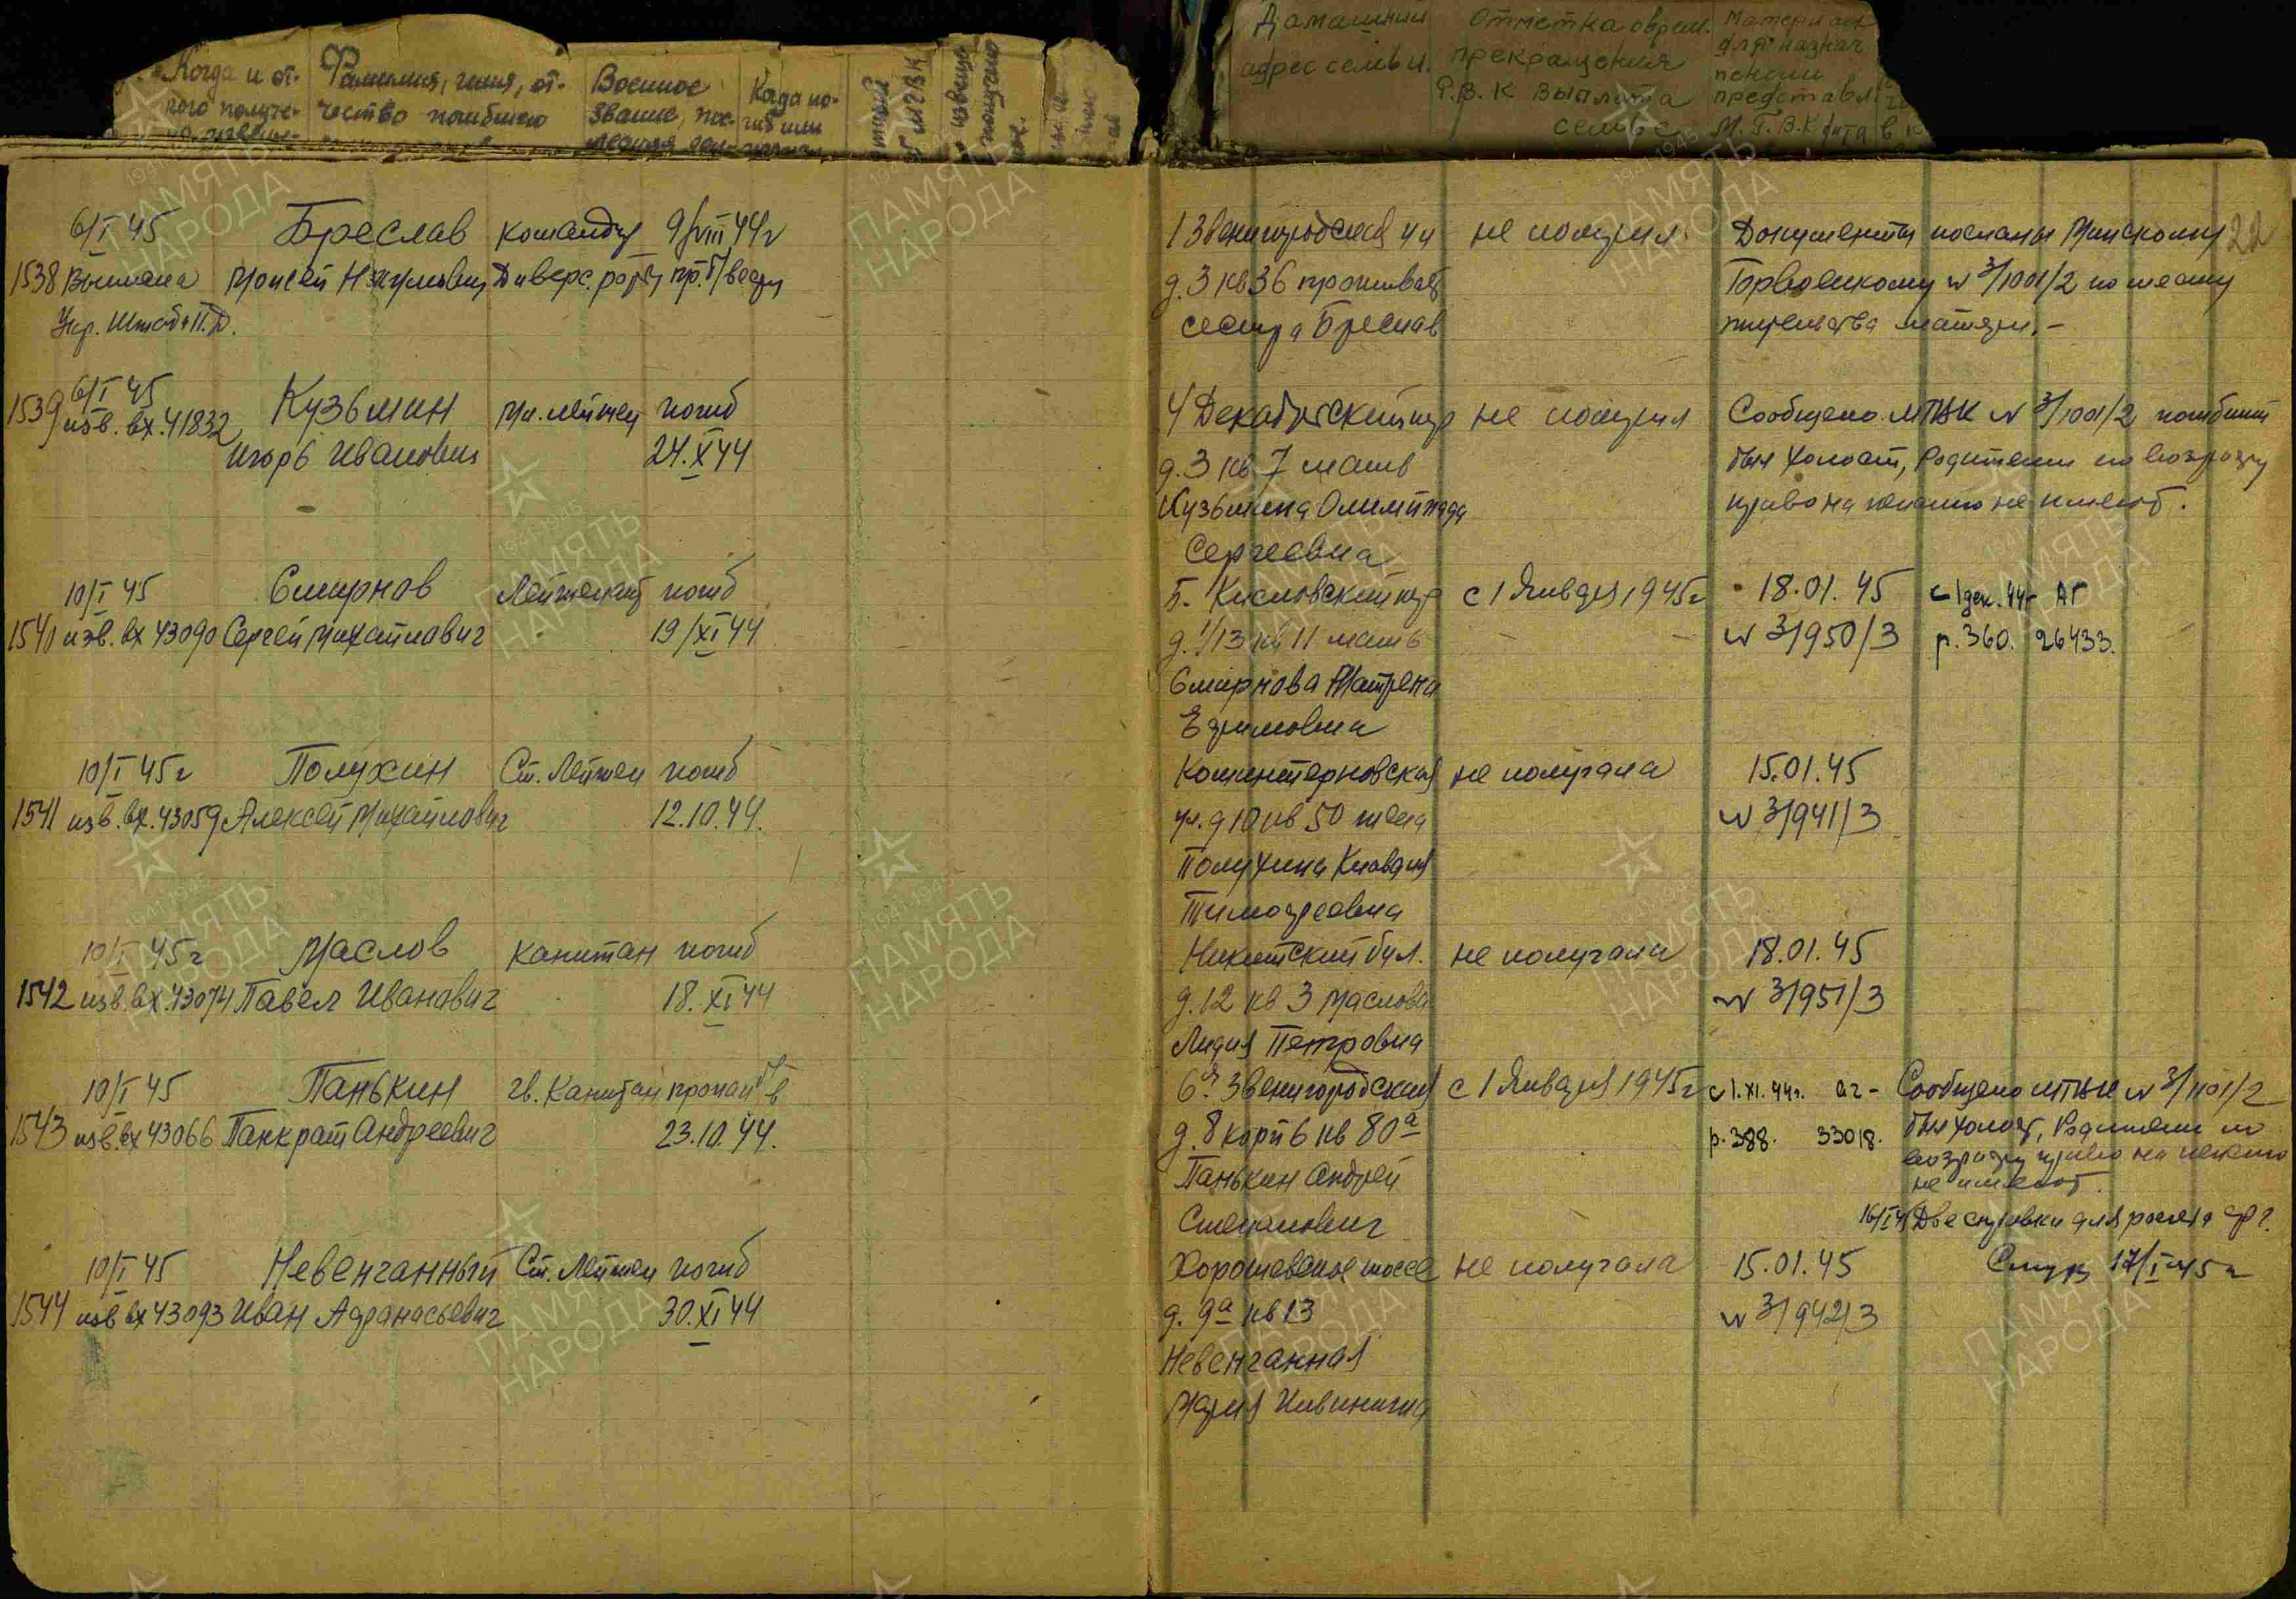 Когда и от-
кого получе-
Фамилия, имя, от-
чество погибшего
Военное
звание, пос-
Когда по-
гиб или
Домашний
адрес семьи.
Отметка о врем.
прекращения
Р.В.К выплата
семье
Материал
для назнач
пенсии
представл.
М.Г.В.К дата
22
6/I 45
1538
Бреслав
Моисей Наумович
командир
Диверс. роты
9/VIII 44г
пр. б/вести
Укр. Штаба П.Д.
1 Звенигородская ул
д. 3 кв 36 проживает
сестра Бреслав
не получал
Документы посланы Минскому
Горвоенкому № 3/1001/2 по месту
жительства матери.-
6/I 45
1539 изв. вх. 41832
Кузьмин
Игорь Иванович
мл. лейтен
погиб
24.XI 44
4 Декабрьский пер
д. 3 кв 7 мать
Кузьмина Олимпиада
Сергеевна
не получал
Сообщено МГВК № 3/1001/2 погибший
был холост, Родители по возрасту
право на пенсию не имеют.
10/I 45
1540 изв. вх 43090
Смирнов
Сергей Михайлович
Лейтенант
погиб
19/XI 44
Б. Кисловский пер
д. 1/13 кв 11 мать
Смирнова Матрена
Ефимовна
с 1 Января 1945г
18.01.45
№ 3/950/3
с 1 дек. 44г АГ
р. 360. 26433.
10/I 45г
1541 изв. вх. 43059
Полухин
Алексей Михайлович
Ст. Лейтен
погиб
12.10.44.
Коминтерновская
ул. д 10 кв 50 жена
Полухина Клавдия
Тимофеевна
не получала
15.01.45
№ 3/941/3
10/I 45г
1542 изв. вх. 43074
Маслов
Павел Иванович
капитан
погиб
18.XI 44
Никитский бул.
д. 12 кв 3 Маслова
Лидия Петровна
не получала
18.01.45
№ 3/951/3
10/I 45
1543 изв. вх 43066
Панькин
Панкрат Андреевич
гв. Капитан
пропал б/в
23.10.44.
6я Звенигородская
д. 8 корп 6 кв 80а
Панькин Андрей
Степанович
с 1 Января 1945г
с 1.XI.44г. аг-
р. 388. 33018.
Сообщено МГВК № 3/1101/2
был холост, Родители по
возрасту право на пенсию
не имеют.
Две справки для
10/I 45
1544 изв вх 43093
Невенчанный
Иван Афанасьевич
Ст. Лейтен
погиб
30.XI 44
Хорошевское шоссе
д. 9а кв 13
Невенчанная
Мария
не получала
15.01.45
№ 3/942/3
17/I-45г
ПАМЯТЬ
НАРОДА
1941-1945